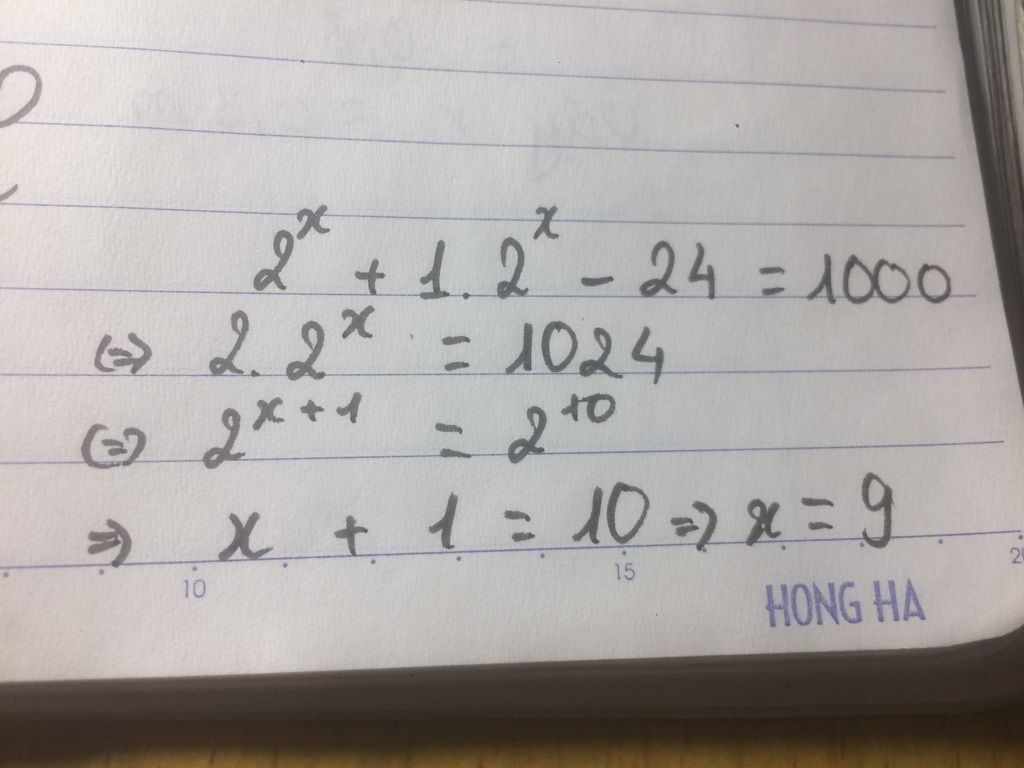 2^x + 1. 2^x - 24 = 1000
(=) 2. 2^x = 1024
(=) 2^{x+1} = 2^{10}
=> x + 1 = 10 => x = 9
10 15
HONG HA